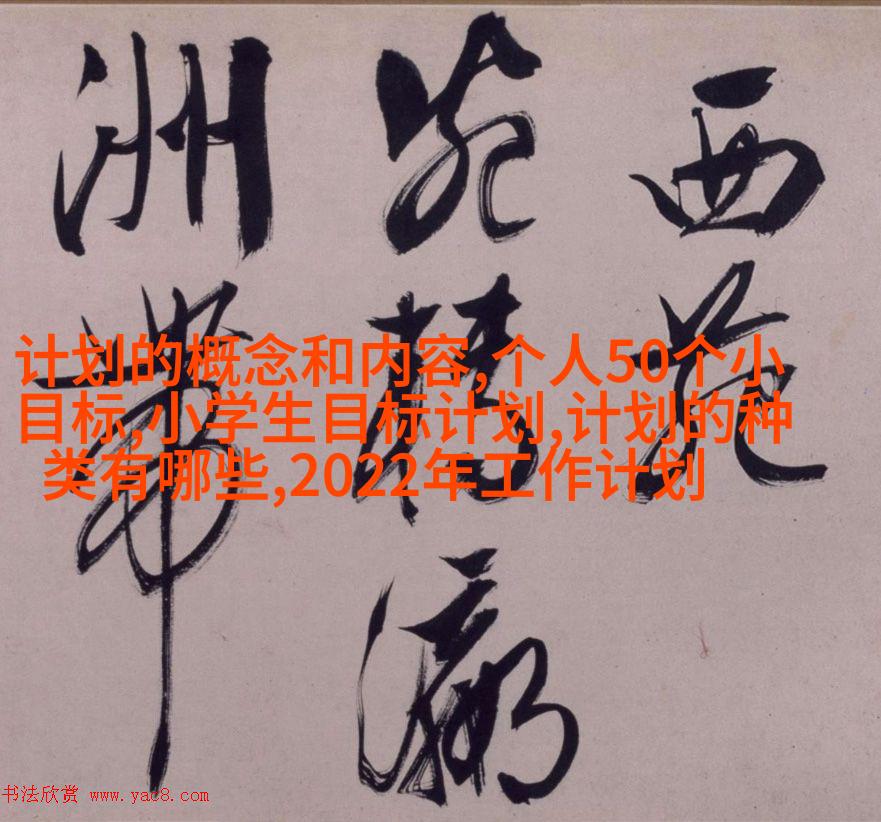 西苑
瀛
洲帶
计划的概念和内容,个人50个小
目标,小学生目标计划,计划的种
类有哪些,2022年工作计划
书法欣赏 www.yac8.com